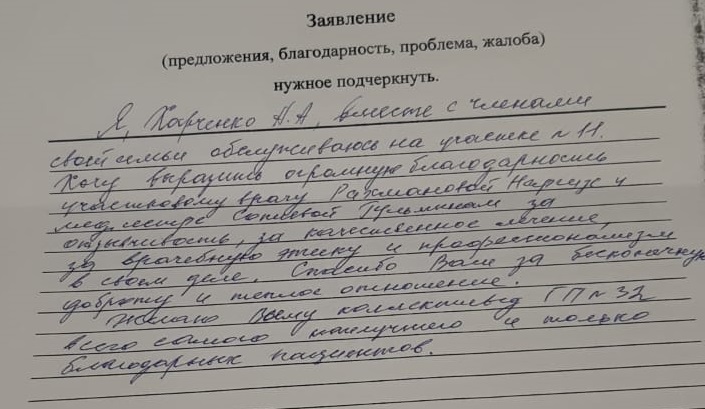 Заявление
(предложения, благодарность, проблема, жалоба)
нужное подчеркнуть.
Я, Харченко Н.А, вместе с членами
своей семьи обслуживаюсь на участке № 11.
Хочу выразить огромную благодарность
участковому врачу Рахмановой Наргиз и
мед.сестре Гульжинам за
отзывчивость, за качественное лечение,
за врачебную этику и профессионализм
в своем деле. Спасибо Вам за бесконечную
доброту и теплое отношение.
Желаю Всему коллективу ГП № 32
всего самого наилучшего и только
благодарных пациентов.